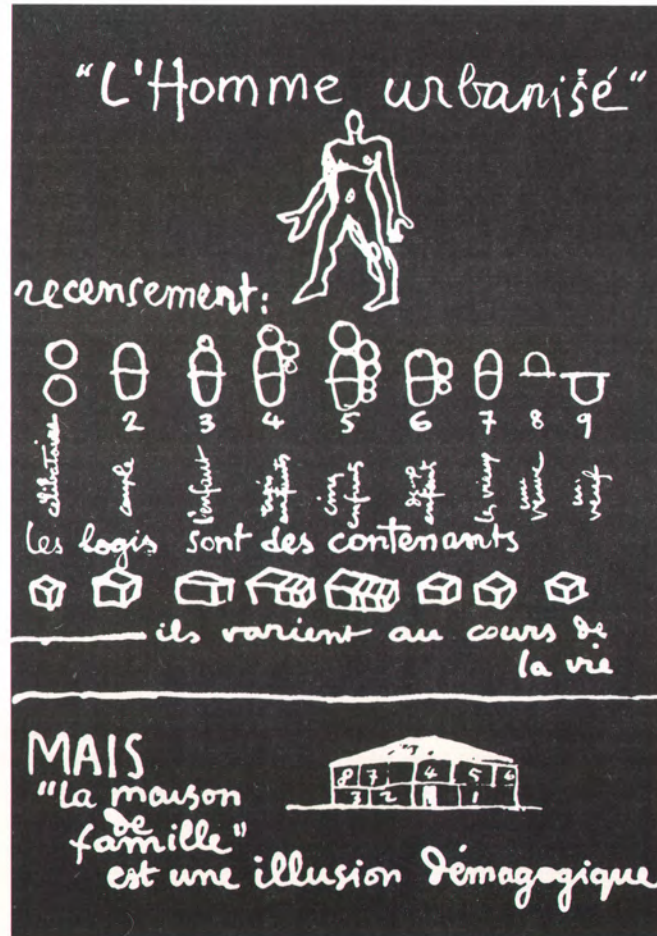 "L'Homme urbanisé"
recensement:
2 3 4 5 6 7 8 9
célibataires couple l'enfant trois enfants cinq enfants enfant les vieux une veuve un veuf
les logis sont des contenants
ils varient au cours de
la vie
MAIS
"la maison
de
famille"
est une illusion démagogique
8 7 4 5 6
3 2 1